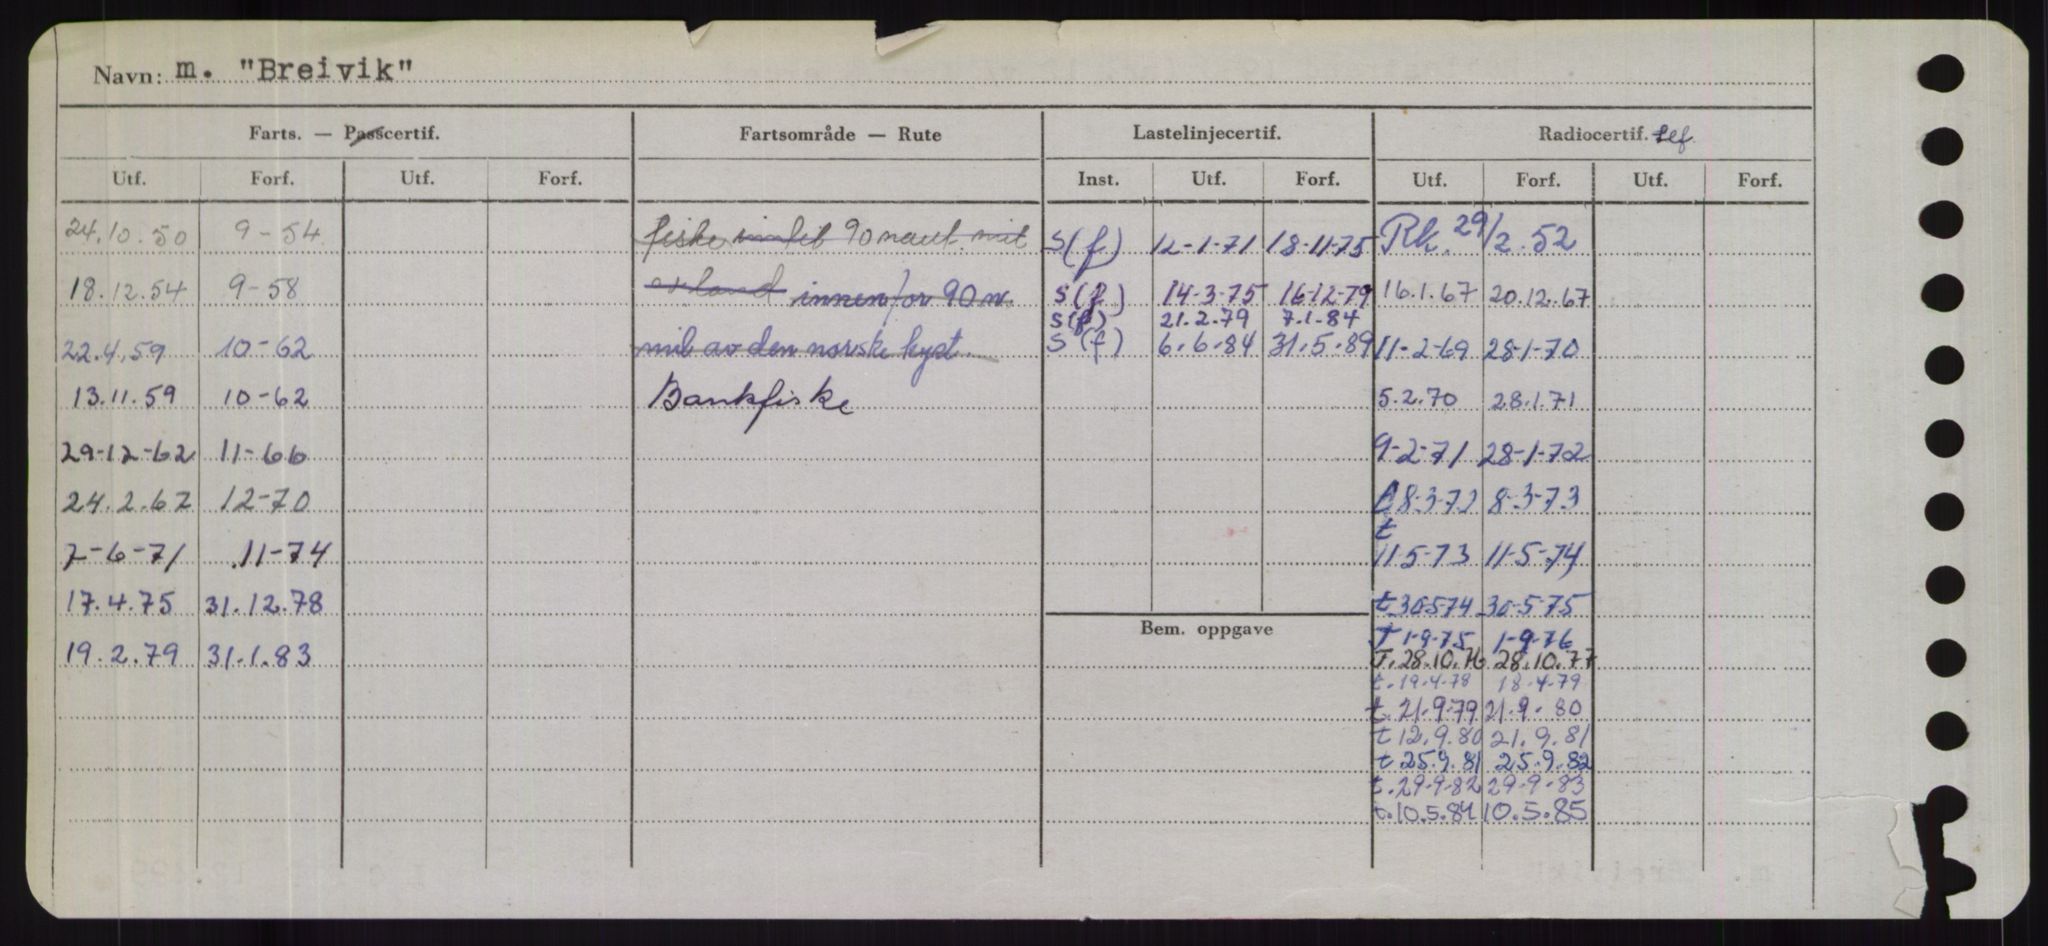 Navn: m. "Breivik"
Farts. — Passcertif. Fartsområde — Rute Lastelinjecertif. Radiocertif. tlf.
Utf. Forf. Utf. Forf. Inst. Utf. Forf. Utf. Forf. Utf. Forf.
24.10.50 9-54 fiske inntil 90 naut. mil S(f) 12-1-71 18-11-75 Rk. 29/2.52
18.12.54 9-58 av land innenfor 90 n. S(f) 14-3-75 16-12-79 16.1.67 20.12.67
S(f) 21.2.79 7.1.84
22.4.59 10-62 mil av den norske kyst. S(f) 6.6.84 31.5.89 11-2-69 28-1-70
13.11.59 10-62 Bankfiske 5.2.70 28.1.71
29-12-62 11-66 9-2-71 28-1-72
24.2.67 12-70 8-3-72 8-3-73
t
7-6-71 11-74 11-5-73 11-5-74
17.4.75 31.12.78 t 30-5-74 30-5-75
Bem. oppgave
T 1-9-75 1-9-76
19.2.79 31.1.83 T. 28.10.76 28.10.77
t. 19.4.78 18.4.79
t. 21.9.79 21.9.80
t 12.9.80 21.9.81
t 25.9.81 25.9.82
t. 29.9.82 29.9.83
t. 10.5.84 10.5.85